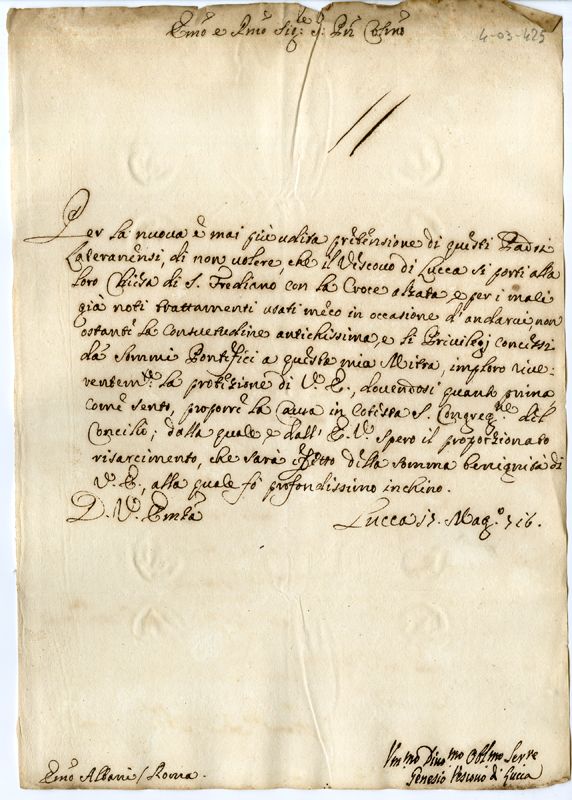 Emo e Rmo Sigre S. Pn Colmo
4-03-425
Per la nuova è mai più udita pretensione di questi Padri
Lateranensi, di non volere, che il Vescovo di Lucca si porti alla
loro Chiesa di S. Frediano con la Croce alzata, e per i mali
già noti trattamenti usati meco in occasione d'andarvi non
ostanti la Consuetudine antichissima, e li Privilegj concessi
da Sommi Pontefici a questa mia Mitra, imploro rive-
rentemte la protezione di V. E., dovendosi quanto prima
come sento, proporre la Causa in cotesta S. Congregne del
Concilio; dalla quale, e dall' E. V. spero il proporzionato
risarcimento, che sarà effetto della somma benignità di
V. E., alla quale fò profondissimo inchino.
D. V. Emza
Lucca 17. Mago 716.
Emo Albani / Roma.
Vmmo Divmo Oblmo Serre
Genesio Vescovo di Lucca